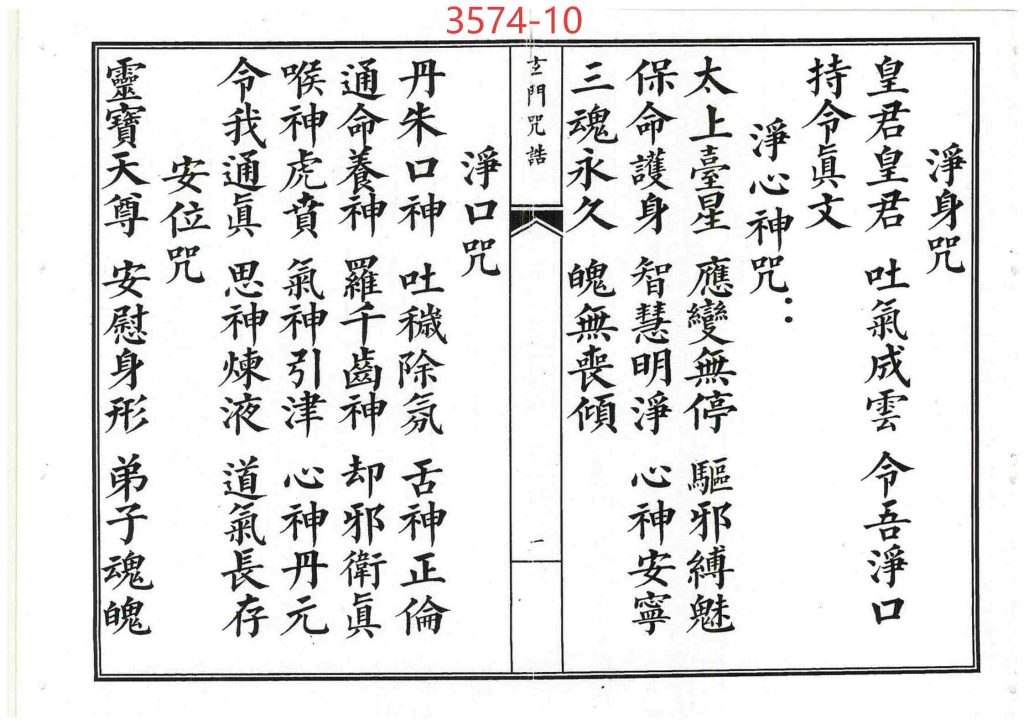 3574-10
淨身咒
皇君皇君 吐氣成雲 令吾淨口
持令眞文
淨心神咒：
太上臺星 應變無停 驅邪縛魅
保命護身 智慧明淨 心神安寧
三魂永久 魄無喪傾
玄門咒誥
一
淨口咒
丹朱口神 吐穢除氛 舌神正倫
通命養神 羅千齒神 却邪衛眞
喉神虎賁 氣神引津 心神丹元
令我通眞 思神煉液 道氣長存
安位咒
靈寶天尊 安慰身形 弟子魂魄